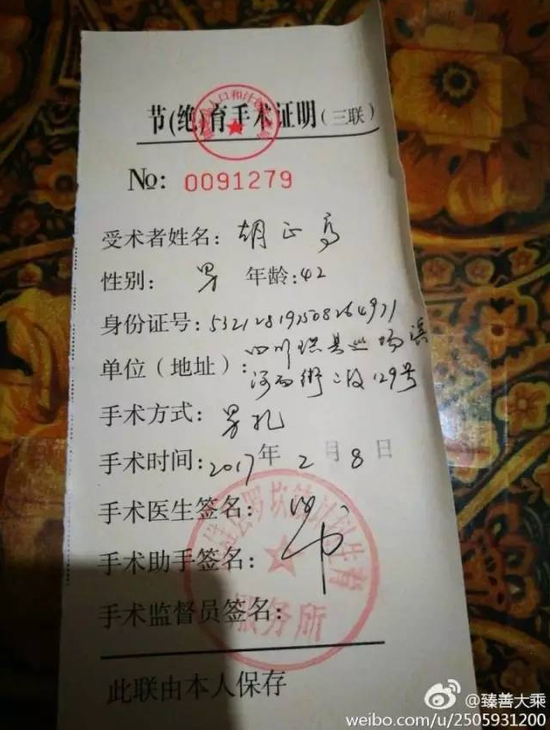 节(绝)育手术证明(三联)
№: 0091279
受术者姓名: 胡正高
性别: 男 年龄: 42
身份证号: 532128197508264971
单位(地址): 四川珙县巡场镇
河西街二段129号
手术方式: 男扎
手术时间: 2017年 2月8日
手术医生签名:
手术助手签名:
手术监督员签名:
罗坎镇计划生育
服务所
此联由本人保存
@臻善大乘
weibo.com/u/2505931200